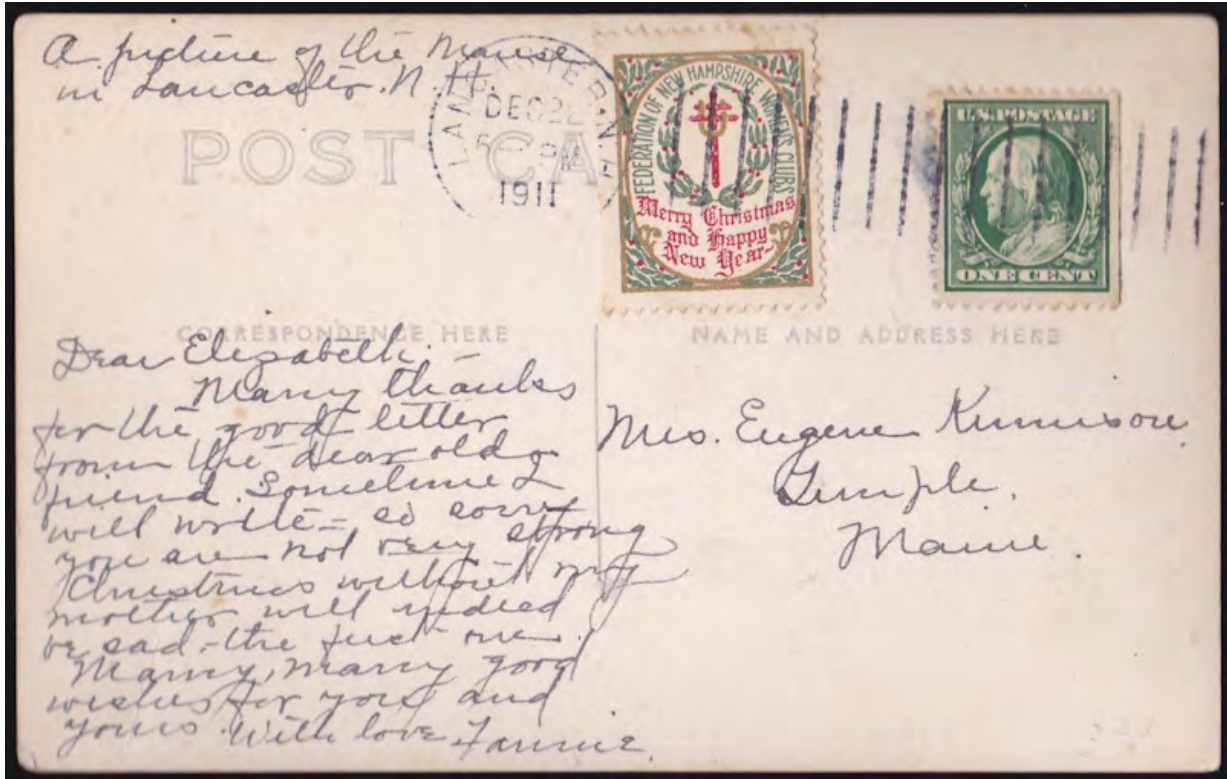 A picture of the Manse
in Lancaster. N. H.
POST CA
LANCASTER, N.H.
DEC 22
6 PM
1911
FEDERATION OF NEW HAMPSHIRE WOMEN'S CLUBS
Merry Christmas
and Happy
New Year
U.S. POSTAGE
ONE CENT
CORRESPONDENCE HERE
NAME AND ADDRESS HERE
Dear Elizabeth. —
Many thanks
for the good letter
from the dear old
friend. Sometime I
will write — so sorry
you are not very strong
Christmas without my
mother will indeed
be sad — the first one.
Many, many good
wishes for you and
yours. With love Fannie.
Mrs. Eugene Kennison
Temple.
Maine.